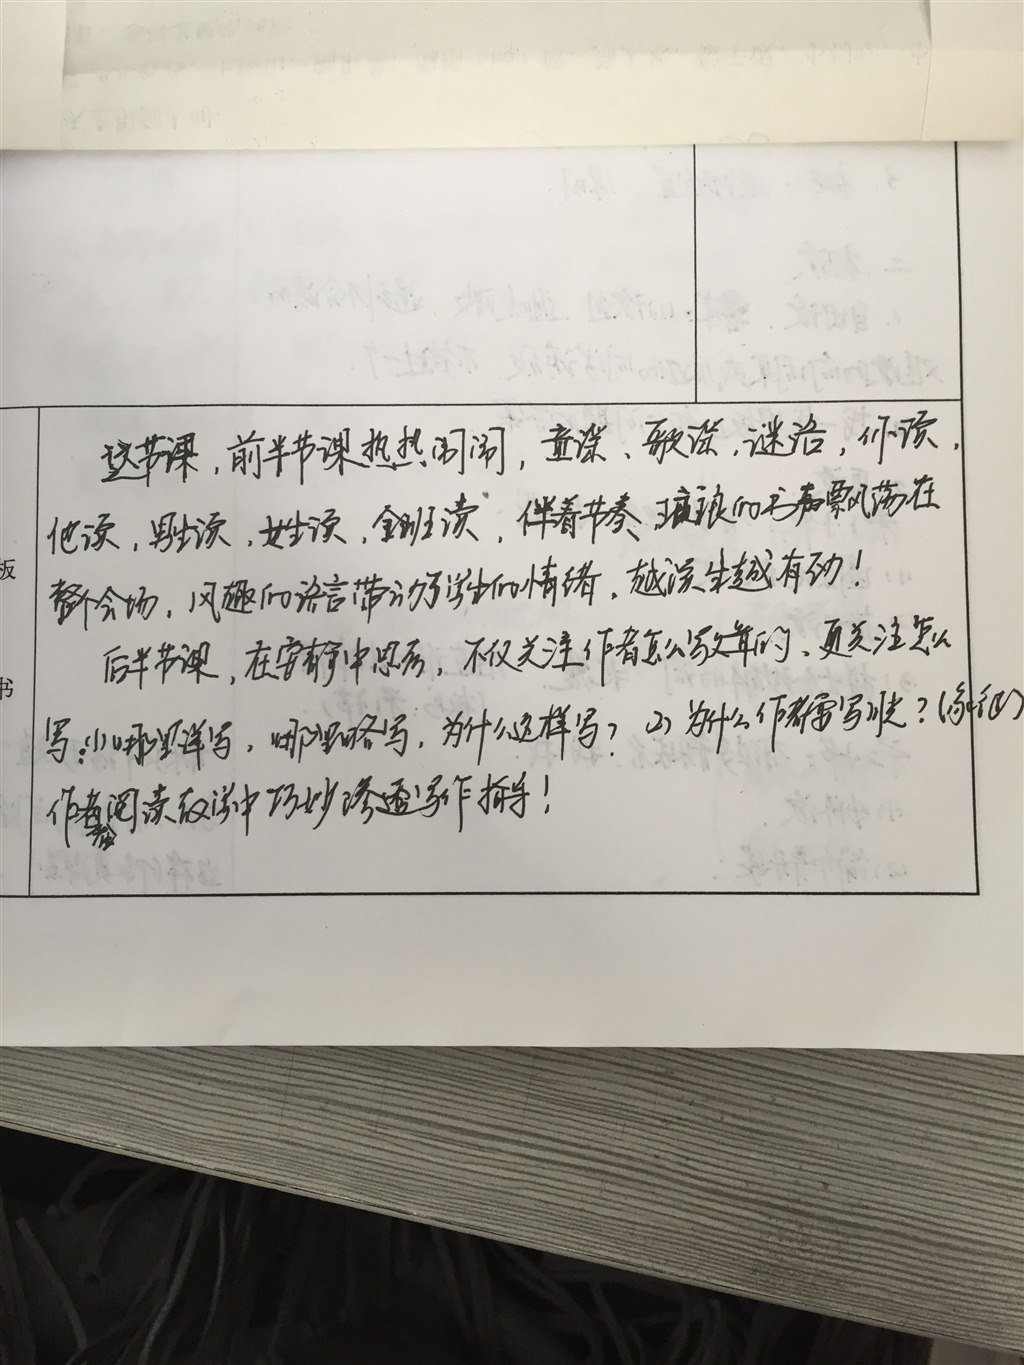 这节课，前半节课热热闹闹，童谣、歌谣，谜语，你读，
板
他读，男生读，女生读，全班读，伴着节奏、琅琅的书声飘荡在
整个会场，风趣的语言带动了学生的情绪，越读生越有劲！
书
后半节课，在安静中思考，不仅关注作者怎么写的，更关注怎么
写：(1)哪里详写，哪里略写，为什么这样写？(2)为什么作者需写？
作者阅读教学中巧妙渗透写作指导！